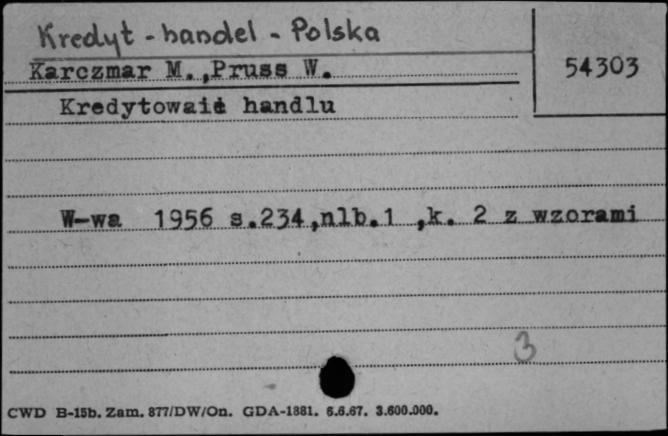 Kredyt - handel - Polska
Karczmar M.,Pruss W.
54303
Kredytowaie handlu
W-wa 1956 s.234,nlb.1 ,k. 2 z wzorami
3
CWD B-15b. Zam. 877/DW/On. GDA-1881. 6.6.67. 3.600.000.